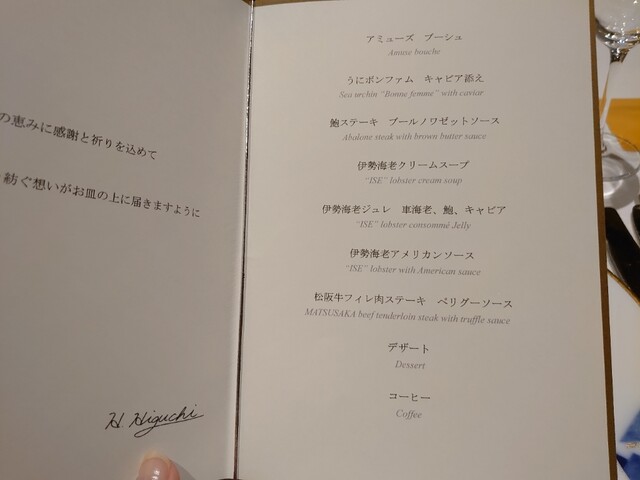 の恵みに感謝と祈りを込めて
紡ぐ想いがお皿の上に届きますように
H Higuchi
アミューズ　ブーシュ
Amuse bouche
うにボンファム　キャビア添え
Sea urchin “Bonne femme” with caviar
鮑ステーキ　ブールノワゼットソース
Abalone steak with brown butter sauce
伊勢海老クリームスープ
“ISE” lobster cream soup
伊勢海老ジュレ　車海老、鮑、キャビア
“ISE” lobster consommé Jelly
伊勢海老アメリカンソース
“ISE” lobster with American sauce
松阪牛フィレ肉ステーキ　ペリグーソース
MATSUSAKA beef tenderloin steak with truffle sauce
デザート
Dessert
コーヒー
Coffee